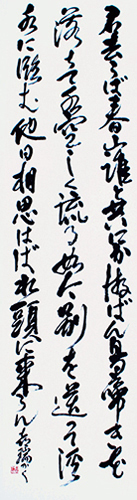 君去らば春山誰と共にか遊ばん鳥啼き花
落ちて水空しく流る如今別を送って渓
水に臨む他日相思はば水頭に来らん